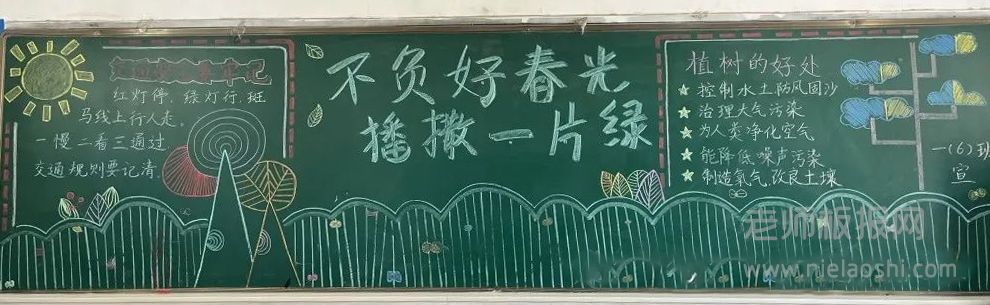 红灯停、绿灯行、斑
马线上行人走。
一慢二看三通过
交通规则要记清.
不负好春光
播撒一片绿
植树的好处
控制水土防风固沙
治理大气污染
为人类净化空气
能降低噪声污染
制造氧气,改良土壤
一(6)班
宣
老师板报网
www.njelaoshi.com